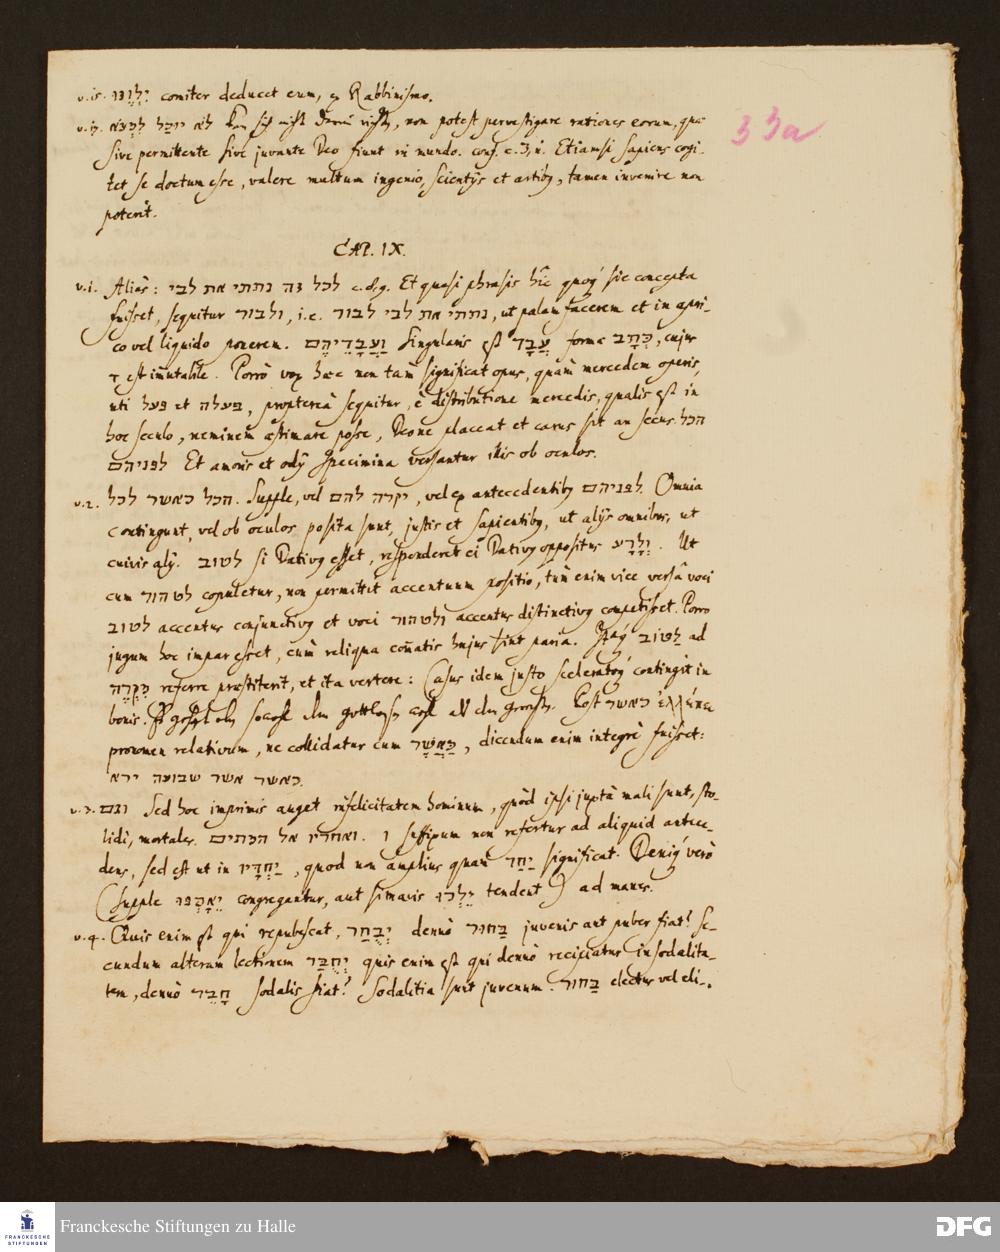 v. 15. יִלְוֶנּוּ comiter deducet eum, ex Rabbinismo.
v. 17. לא יוכל למצא kan sich nicht darein richten, non potest pervestigare rationes eorum, quæ
sive permittente sive juvante Deo fiunt in mundo. conf. c. 3, 11. Etiamsi sapiens cogi-
tet se doctum esse, valere multum ingenio, scientijs et artibus, tamen invenire non
poterit.
CAP. IX.
v. 1. Aliàs: לכל זה נתתי את לבי c. 8, 9. Et quasi phrasis hîc quoque sic concepta
fuisset, sequitur ולבור, i. e. נתתי את לבי לבור, ut palam facerem et in apri-
co vel liquido ponerem. וַעֲבָדֵיהֶם Singularis est עֲבָד formæ כְּתָב, cujus
ָ est immutabile. Porrò vox hæc non tam significat opus, quàm mercedem operis,
uti פעל et פעלה, proptereà sequitur, è distributione mercedis, qualis est in
hoc seculo, neminem æstimare posse, Deone placeat et carus sit an secus. הכל
לפניהם Et amoris et odij specimina versantur illis ob oculos.
v. 2. הכל כאשר לכל. Supple, vel יקרה להם, vel ex antecedentibus לפניהם. Omnia
contingunt, vel ob oculos posita sunt, justis et sapientibus, ut alijs omnibus, ut
cuivis alij. לטוב si Dativus esset, responderet ei Dativus oppositus וְלָרָע. Ut
cum לטהור copuletur, non permittit accentuum positio, tùm enim vice versâ voci
לטוב accentus conjunctivus et voci ולטהור accentus distinctivus competisset. Porro
jugum hoc impar esset, cùm reliqua commatis hujus sint paria. Itaque לַטּוֹב ad
מִקְרֶה referre præstiterit, et ita vertere: Casus idem justo sceleratoque contingit in
bonis. Es geht eben sowohl dem gottlosen wohl als dem gerechten. Post כאשר ἐλλείπει
pronomen relativum, ne collidatur cum כַּאֲשֶׁר, dicendum enim integrè fuisset:
כאשר אשר שבועה ירא.
v. 3. וגם Sed hoc imprimis auget infelicitatem hominum, quòd ipsi juxtà mali sunt, sto-
lidi, mortales. ואחריו אל המתים. ו suffixum non refertur ad aliquid antece-
dens, sed est ut in יַחְדָּיו, quod non amplius quàm יַחַד significat. Denique verò
(supple יֵאָסְפוּ congregantur, aut si mavis יֵלְכוּ tendent) ad manes.
v. 4. Quis enim est qui repubescat, יְבֻחַר denuò בָּחוּר juvenis aut puber fiat? Se-
cundum alteram lectionem יְחֻבַּר quis enim est qui denuò recipiatur in sodalita-
tem, denuò חָבֵר sodalis fiat? Sodalitia sunt juvenum. בָּחוּר electus vel eli-
33a
Franckesche Stiftungen zu Halle
FRANCKESCHE
STIFTUNGEN
DFG